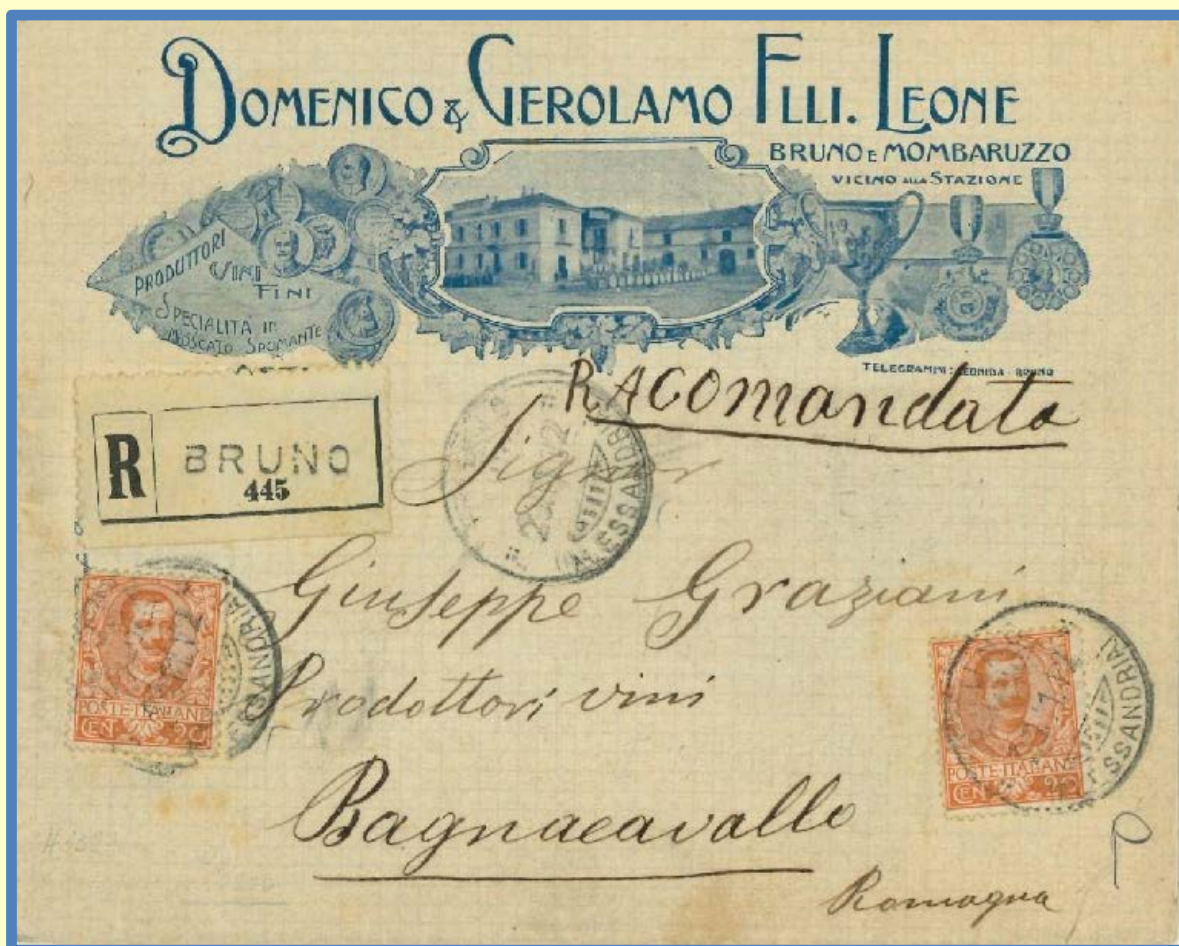 DOMENICO & GEROLAMO FLLI. LEONE
BRUNO E MOMBARUZZO
VICINO ALLA STAZIONE
PRODUTTORI
VINI
FINI
SPECIALITÀ IN
MOSCATO SPUMANTE
TELEGRAMMI: LEONIDA - BRUNO
RACOMANDATA
R BRUNO
445
ALESSANDRIA
Signor
Giuseppe Graziani
Prodottori vini
Bagnacavallo
Romagna
POSTE·ITALIANE
CEN. 20
SSANDRIA
POSTE·ITALIANE
CEN. 20
SSANDRIA